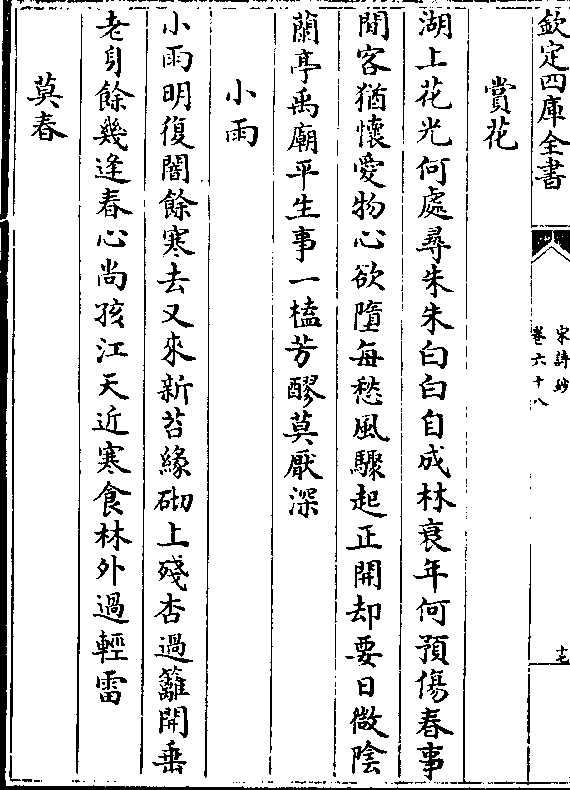 欽定四庫全書
宋詩鈔
卷六十八
十七
賞花
湖上花光何處尋朱朱白白自成林衰年何預傷春事
閒客猶懷愛物心欲墮每愁風驟起正開却要日微陰
蘭亭禹廟平生事一榼芳醪莫厭深
小雨
小雨明復闇餘寒去又來新苔緣砌上殘杏過籬開垂
老身餘幾逢春心尚孩江天近寒食林外過輕雷
莫春